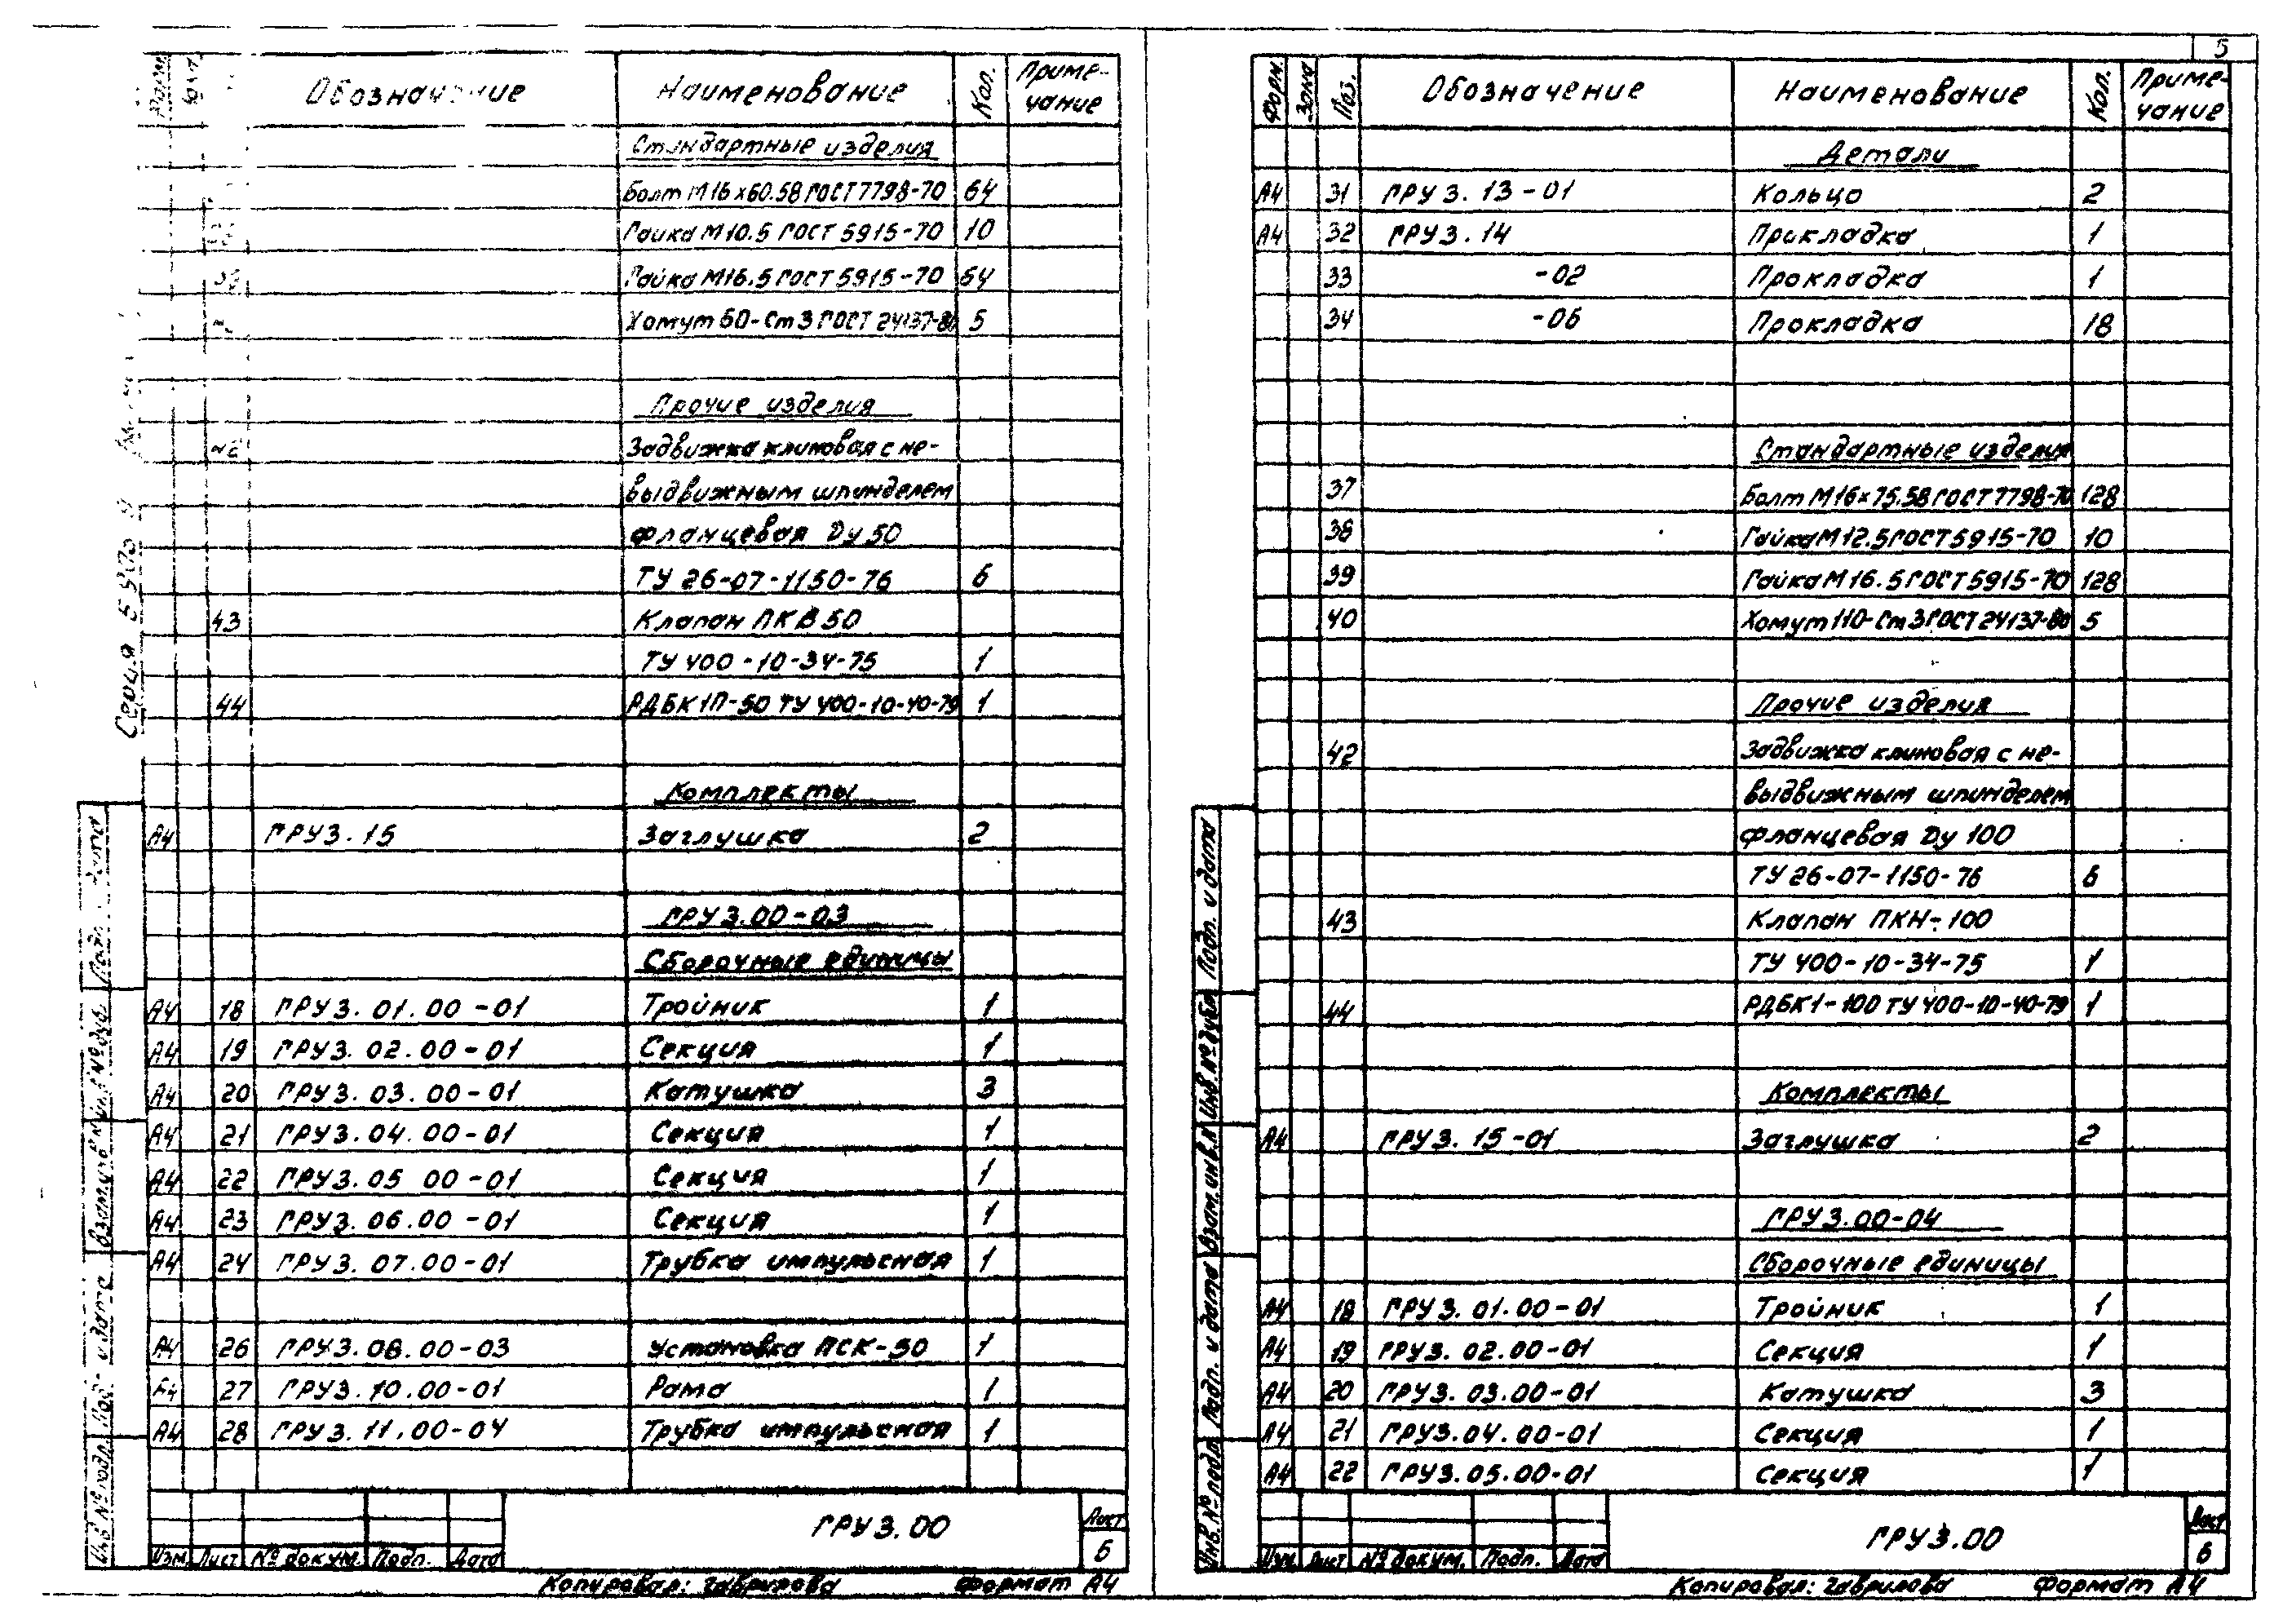 Обозначение Наименование Кол. Приме-
чание
Стандартные изделия
Болт М16х60.58 ГОСТ 7798-70 64
Гайка М10.5 ГОСТ 5915-70 10
Гайка М16.5 ГОСТ 5915-70 64
Хомут 60-Ст3 ГОСТ 24137-80 5
Прочие изделия
42 Задвижка клиновая с не-
выдвижным шпинделем
фланцевая Dу 50
ТУ 26-07-1150-76 6
43 Клапан ПКВ 50
ТУ 400-10-34-75 1
44 РДБК1П-50 ТУ 400-10-40-79 1
Комплекты
А4 ГРУ3.15 Заглушка 2
ГРУ3.00-03
Сборочные единицы
А4 18 ГРУ3.01.00-01 Тройник 1
А4 19 ГРУ3.02.00-01 Секция 1
А4 20 ГРУ3.03.00-01 Катушка 3
А4 21 ГРУ3.04.00-01 Секция 1
А4 22 ГРУ3.05 00-01 Секция 1
А4 23 ГРУ3.06.00-01 Секция 1
А4 24 ГРУ3.07.00-01 Трубка импульсная 1
А4 26 ГРУ3.08.00-03 Установка ПСК-50 1
27 ГРУ3.10.00-01 Рама 1
А4 28 ГРУ3.11.00-04 Трубка импульсная 1
Изм Лист № докум. Подп. Дата
ГРУ3.00
Лист
Копировал: Гаврилова Формат А4
Серия
Инв. № подл. Взам. инв. №
5
Форм. Зона Поз. Обозначение Наименование Кол. Приме-
чание
Детали
А4 31 ГРУ3.13-01 Кольцо 2
А4 32 ГРУ3.14 Прикладка 1
33 -02 Прокладка 1
34 -06 Прокладка 18
Стандартные изделия
37 Болт М16х75.58 ГОСТ 7798-70 128
38 Гайка М12.5 ГОСТ 5915-70 10
39 Гайка М16.5 ГОСТ 5915-70 128
40 Хомут 110-Ст3 ГОСТ 24137-80 5
Прочие изделия
42 Задвижка клиновая с не-
выдвижным шпинделем
фланцевая Dу 100
ТУ 26-07-1150-76 6
43 Клапан ПКН-100
ТУ 400-10-34-75 1
44 РДБК1-100 ТУ 400-10-40-79 1
Комплекты
А4 ГРУ3.15-01 Заглушка 2
ГРУ3.00-04
Сборочные единицы
А4 18 ГРУ3.01.00-01 Тройник 1
А4 19 ГРУ3.02.00-01 Секция 1
А4 20 ГРУ3.03.00-01 Катушка 3
А4 21 ГРУ3.04.00-01 Секция 1
А4 22 ГРУ3.05.00-01 Секция 1
Изм Лист № докум. Подп. Дата
ГРУ3.00
Лист
6
Копировал: Гаврилова Формат А4
Инв. № подл. Подп. и дата Взам. инв. № Инв. № дубл. Подп. и дата